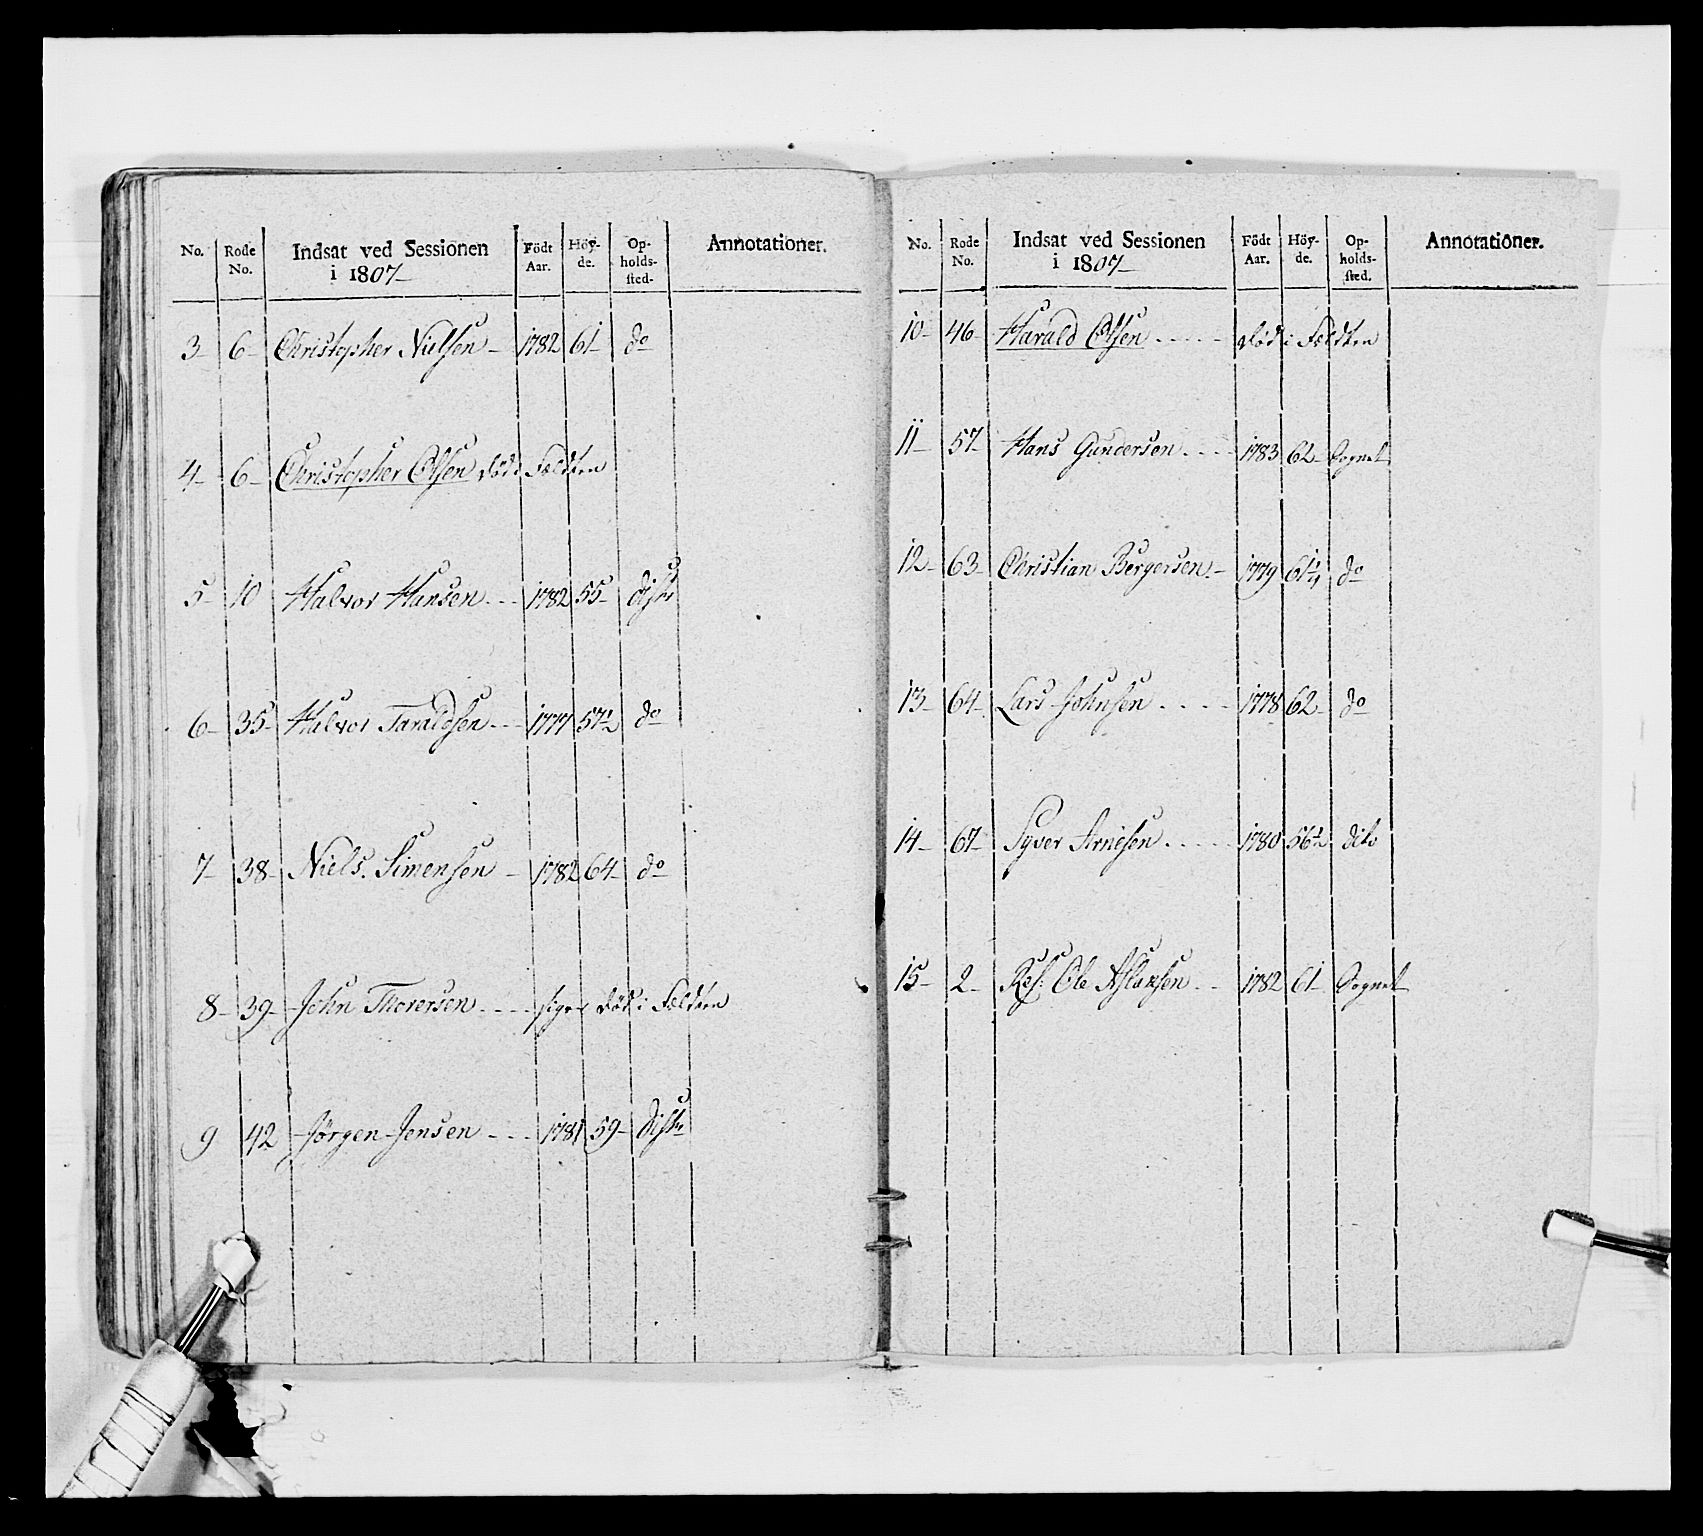 No. Rode No. Indsat ved Sessionen i 1807 Födt Aar. Höy-de. Op-holds-sted. Annotationer.
3 6 Christopher Nielsen 1782 61 do
4 6 Christopher Olsen död i Feldten
5 10 Halvor Hansen 1782 55 distr
6 35 Halvor Taraldsen 1777 57½ do
7 38 Niels Simensen 1782 64 do
8 39 John Thorersen siges död i Feldten
9 42 Jörgen Jensen 1781 59 distr
No. Rode No. Indsat ved Sessionen i 1807 Födt Aar. Höy-de. Op-holds-sted. Annotationer.
10 46 Harald Olsen död i Feldten
11 57 Hans Gundersen 1783 62 Sognet
12 63 Christian Bergersen 1779 61¼ do
13 64 Lars Johnsen 1778 62 do
14 67 Syver Arnesen 1780 56½ dito
15 2 Res. Ole Aslaksen 1782 61 Sognet